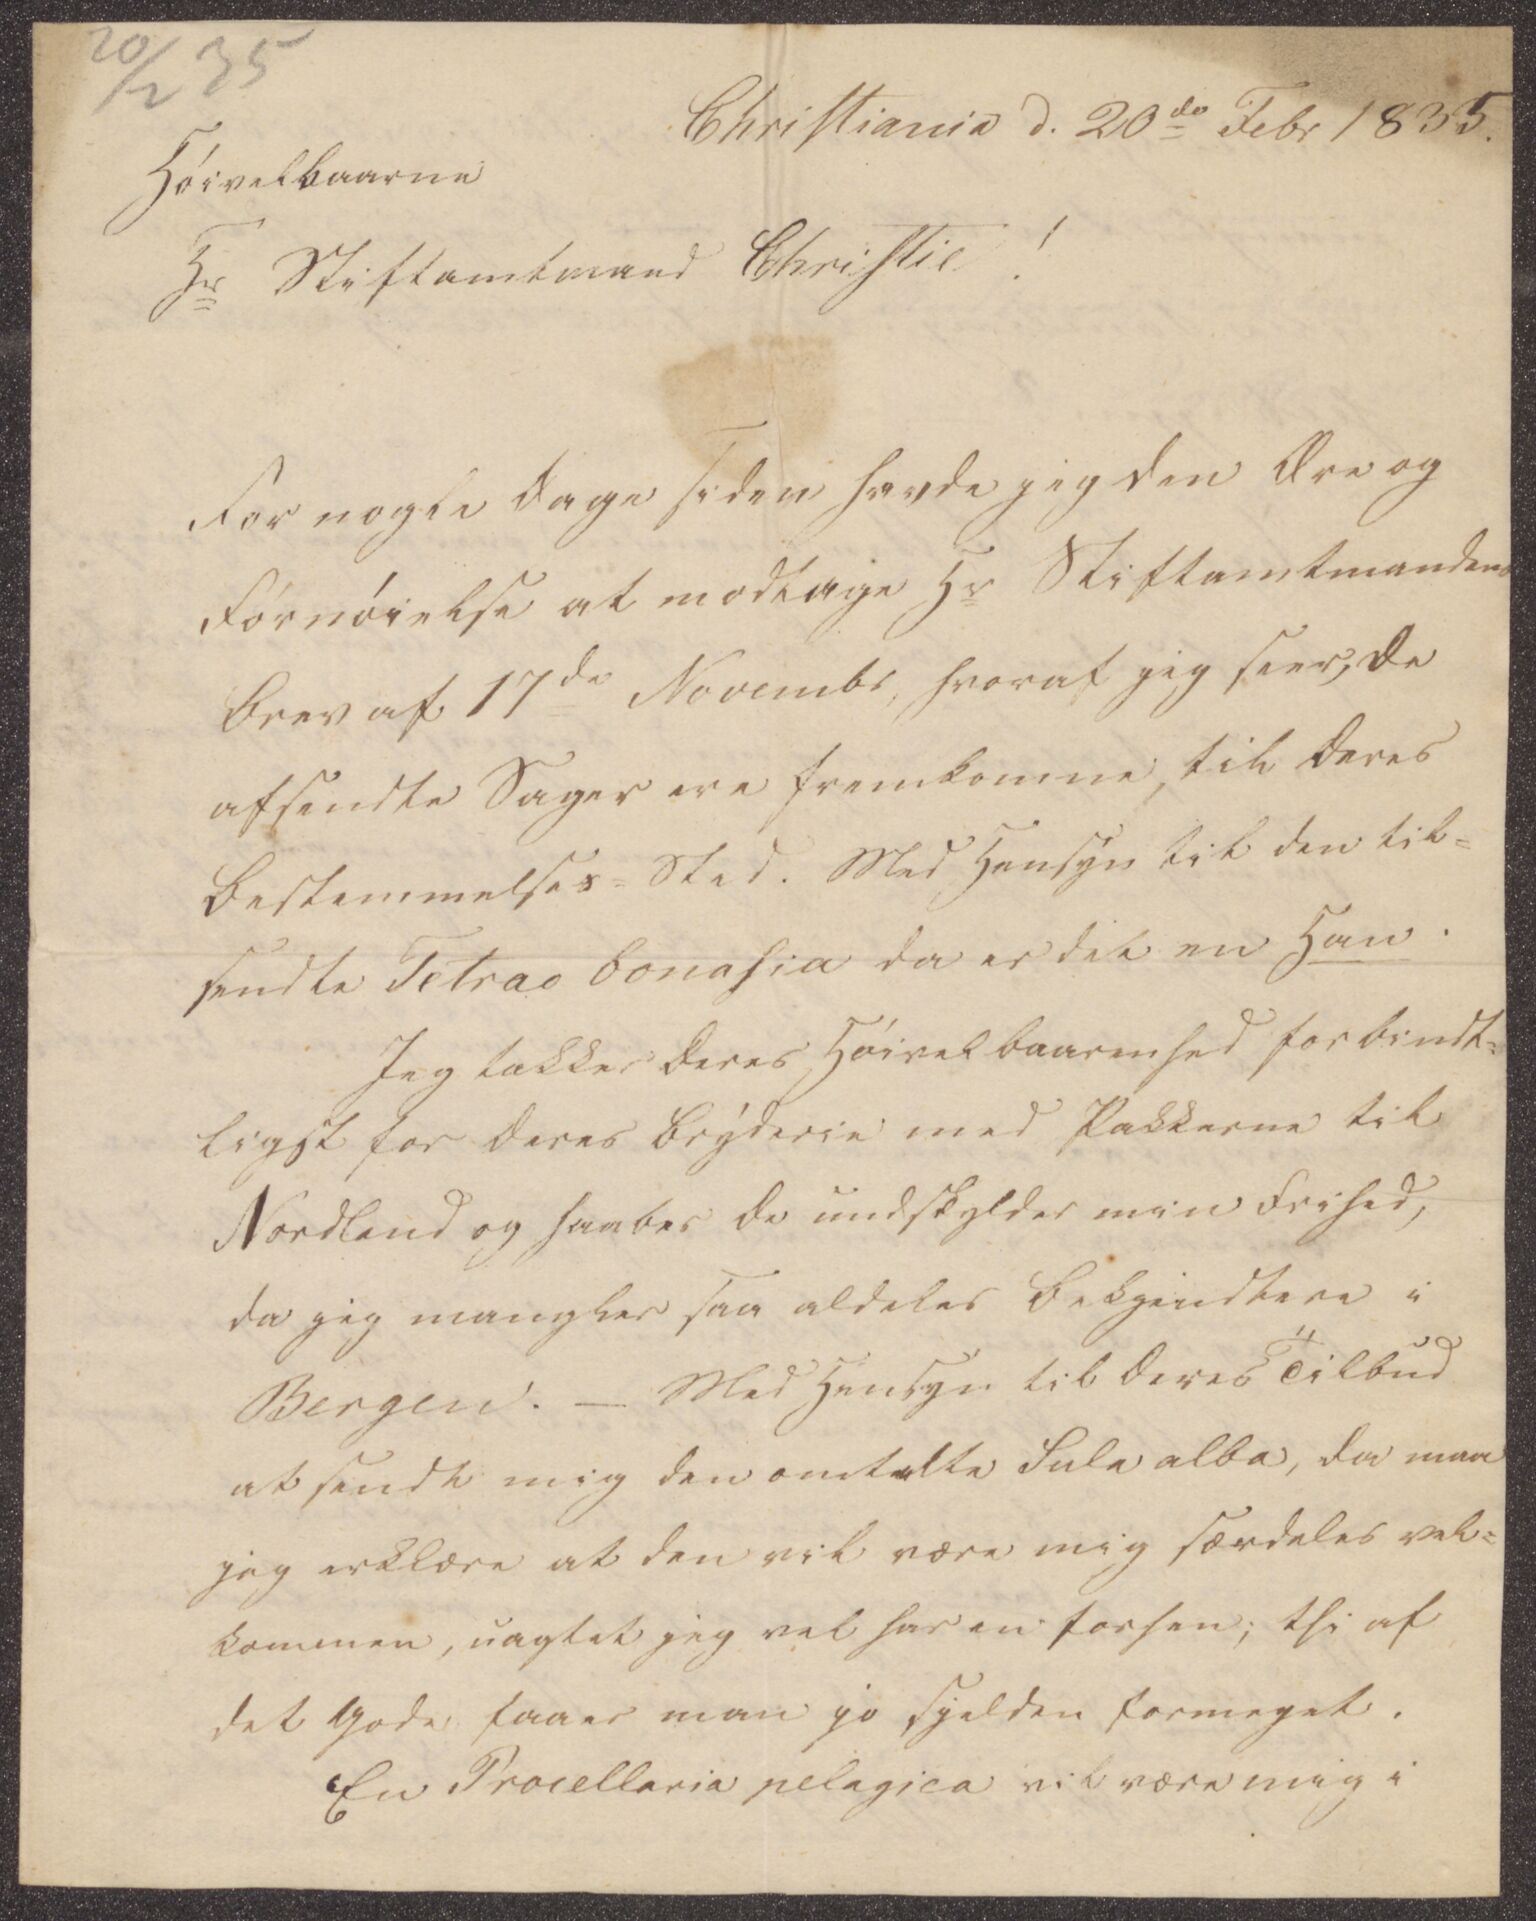 20/2 35
Christiania d. 20de Febr 1835.
Höivelbaarne
Hr Stiftamtmand Christie!
For nogle Dage siden havde jeg den Ære og
Fornöielse at modtage Hr Stiftamtmandens
Brev af 17de Novembr, hvoraf jeg seer, de
afsendte Sager ere fremkomne, til deres
Bestemmelses-Sted. Med Hensyn til den til-
sendte Tetrao bonasia da er det en Han.
Jeg takker Deres Höivelbaarenhed forbindt-
ligst for Deres Bryderie med Pakkerne til
Nordland og haaber De undskylder min Frihed,
da jeg mangler saa aldeles Bekjendtere i
Bergen. — Med Hensyn til Deres Tilbud
at sende mig den omtalte Sula alba, da maa
jeg erklære at den vil være mig særdeles vel-
kommen, uagtet jeg vel har en forhen; thi af
det Gode faaer man jo sjelden formeget.
En Procellaria pelagica vil være mig i